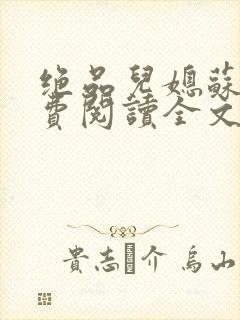 绝品兒媳蘇
費閱讀全文
貴志 介 烏山